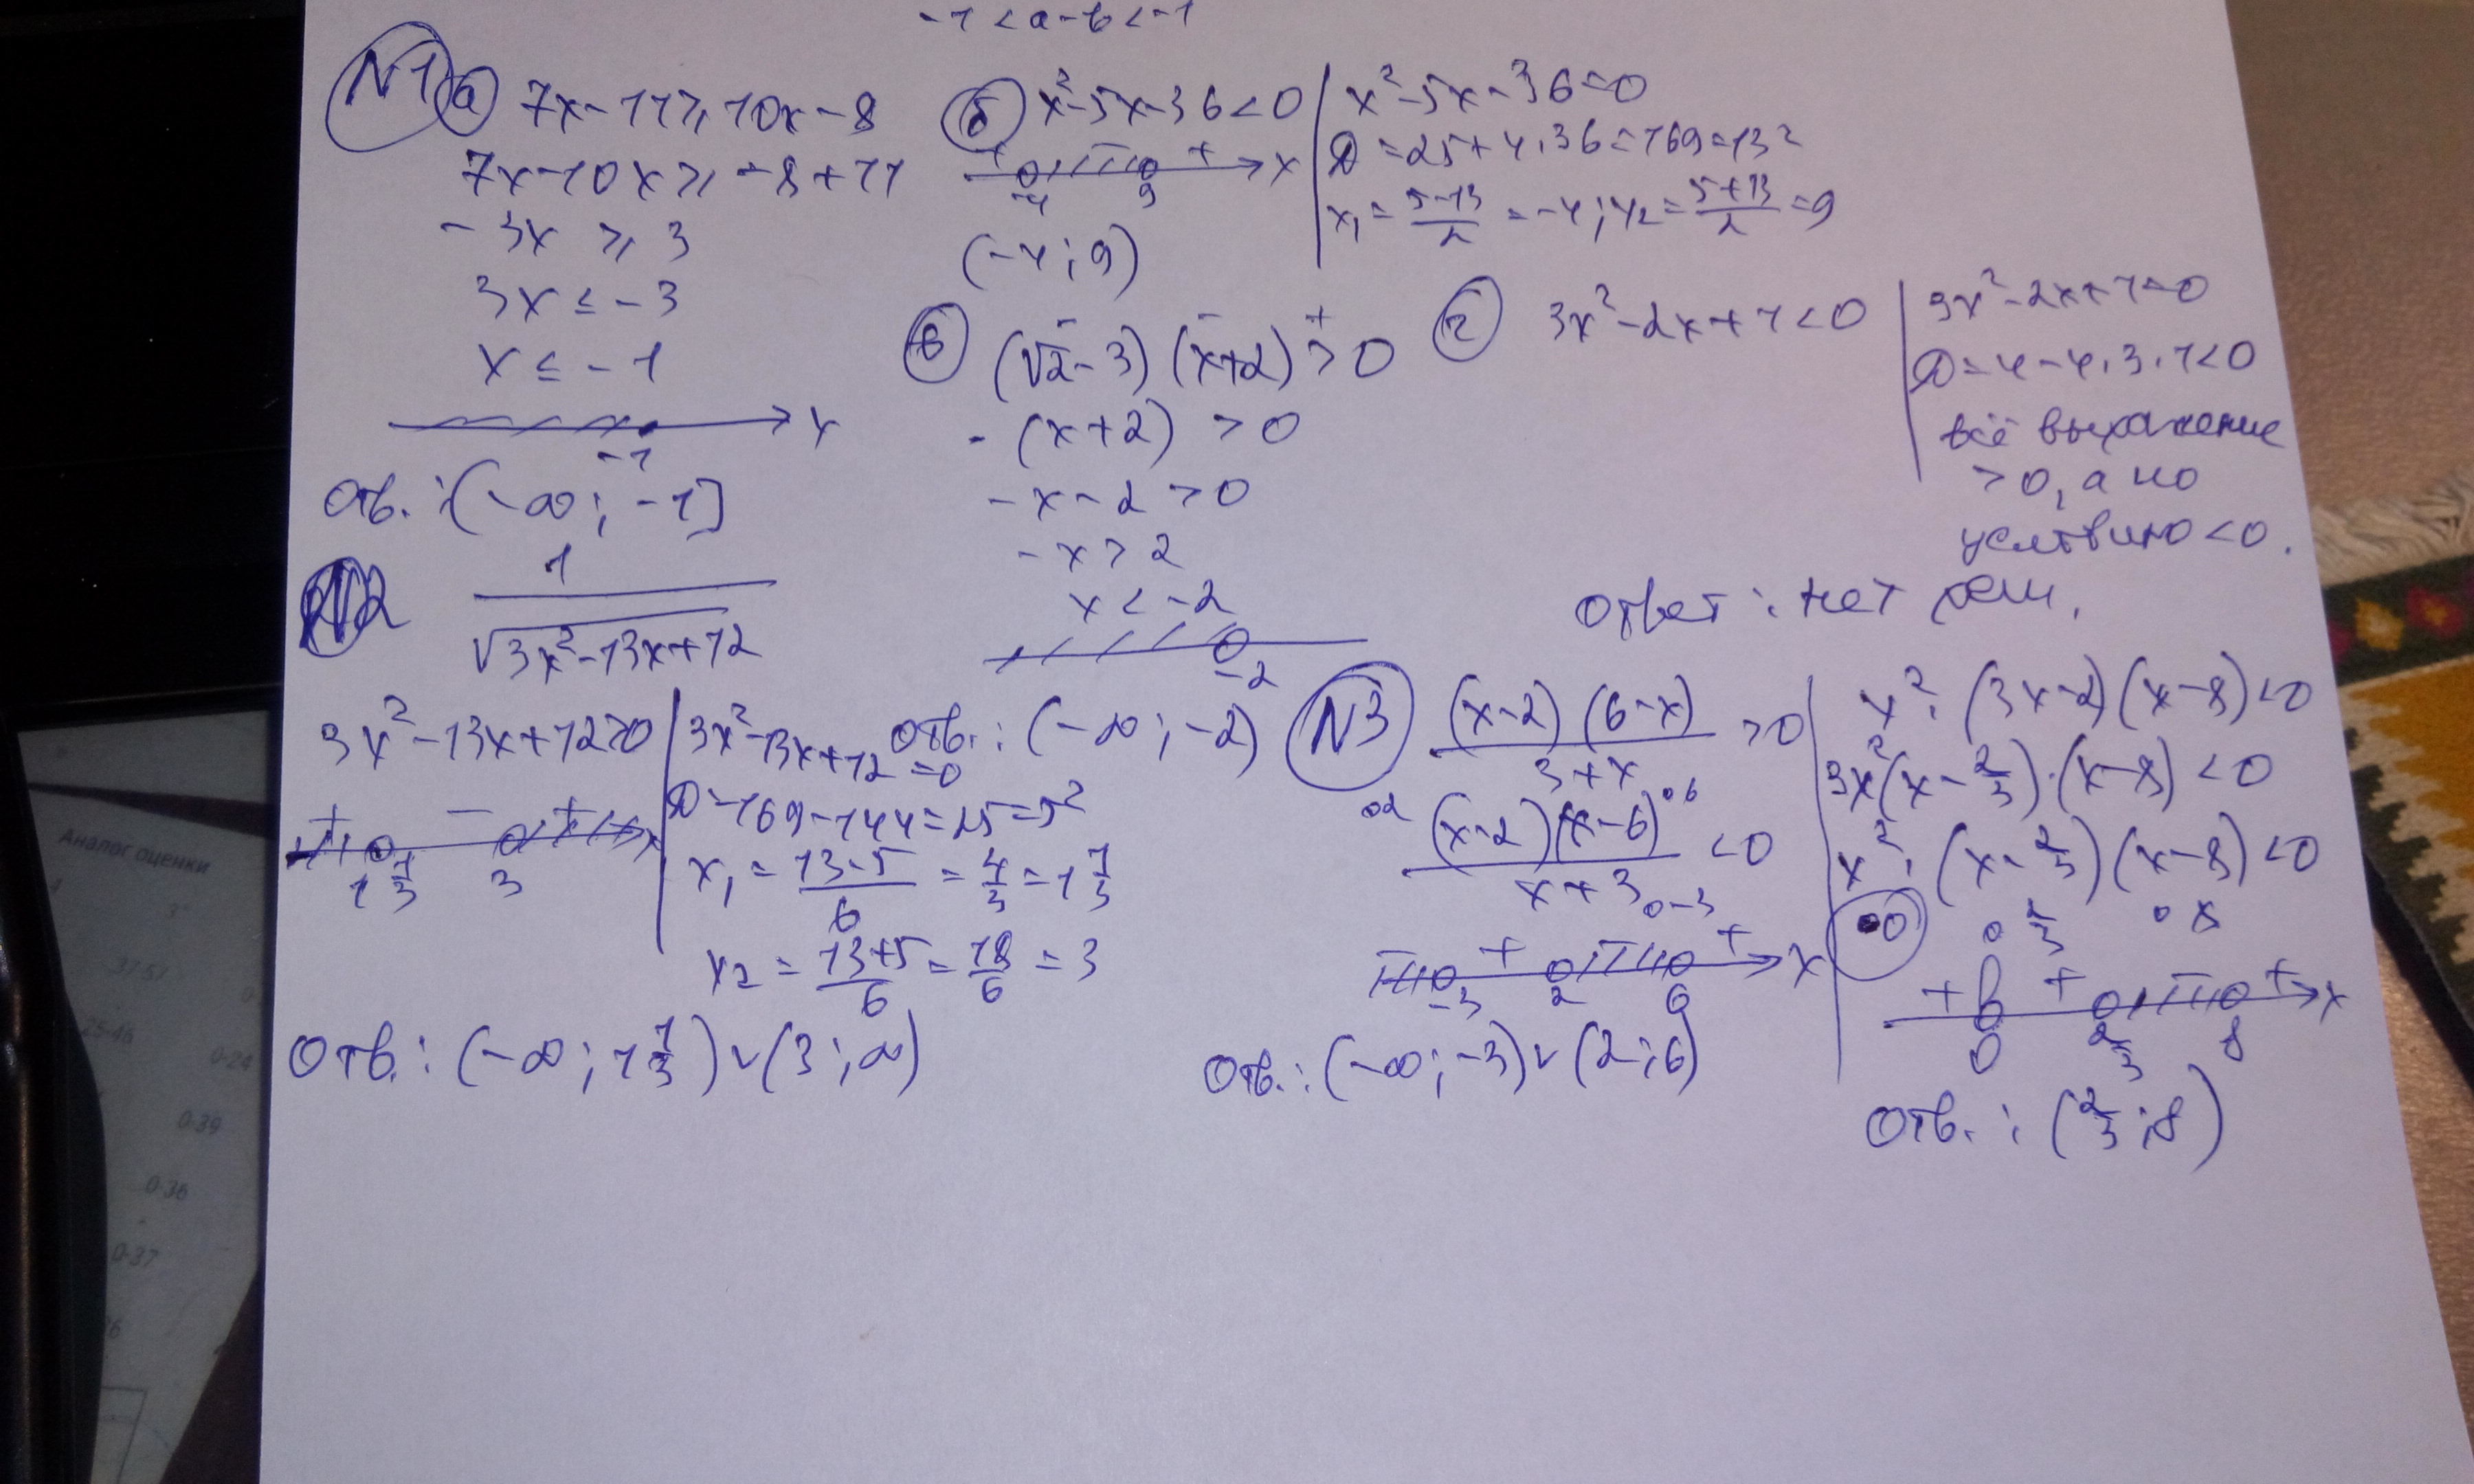 -7 < a-b < -1
N1 а) 7x-11 ⩾ 10x-8
7x-10x ⩾ -8+11
-3x ⩾ 3
3x ≤ -3
x ≤ -1
x
-1
Отв.: (-∞; -1]
б) x²-5x-36<0
+ - + x
-4 9
(-4; 9)
x²-5x-36=0
D=25+4·36=169=13²
x₁ = (5-13)/2 = -4; x₂ = (5+13)/2 = 9
в) (√2-3)(x+2) > 0
- - +
-(x+2) > 0
-x-2 > 0
-x > 2
x < -2
-2
Отв.: (-∞; -2)
г) 3x²-2x+1<0
3x²-2x+1=0
D=4-4·3·1<0
всё выражение
>0, а но
условию <0.
Ответ: нет реш.
N2 1/√(3x²-13x+12)
3x²-13x+12>0
+ - + x
1 1/3 3
3x²-13x+12=0
D=169-144=25=5²
x₁ = (13-5)/6 = 4/3 = 1 1/3
x₂ = (13+5)/6 = 18/6 = 3
Отв.: (-∞; 1 1/3) ∪ (3; ∞)
N3 (x-2)(6-x)/(3+x) > 0
(x-2)(x-6)/(x+3) < 0
∘2 ∘6 ∘-3
- + - + x
-3 2 6
Отв.: (-∞; -3) ∪ (2; 6)
x²·(3x-2)(x-8)<0
3x²(x-2/3)·(x-8)<0
x²·(x-2/3)(x-8)<0
•0 ∘2/3 ∘8
+ + - + x
0 2/3 8
Отв.: (2/3; 8)
Аналог оценки
37-51
25-46
0-24
0-39
0-36
0-37